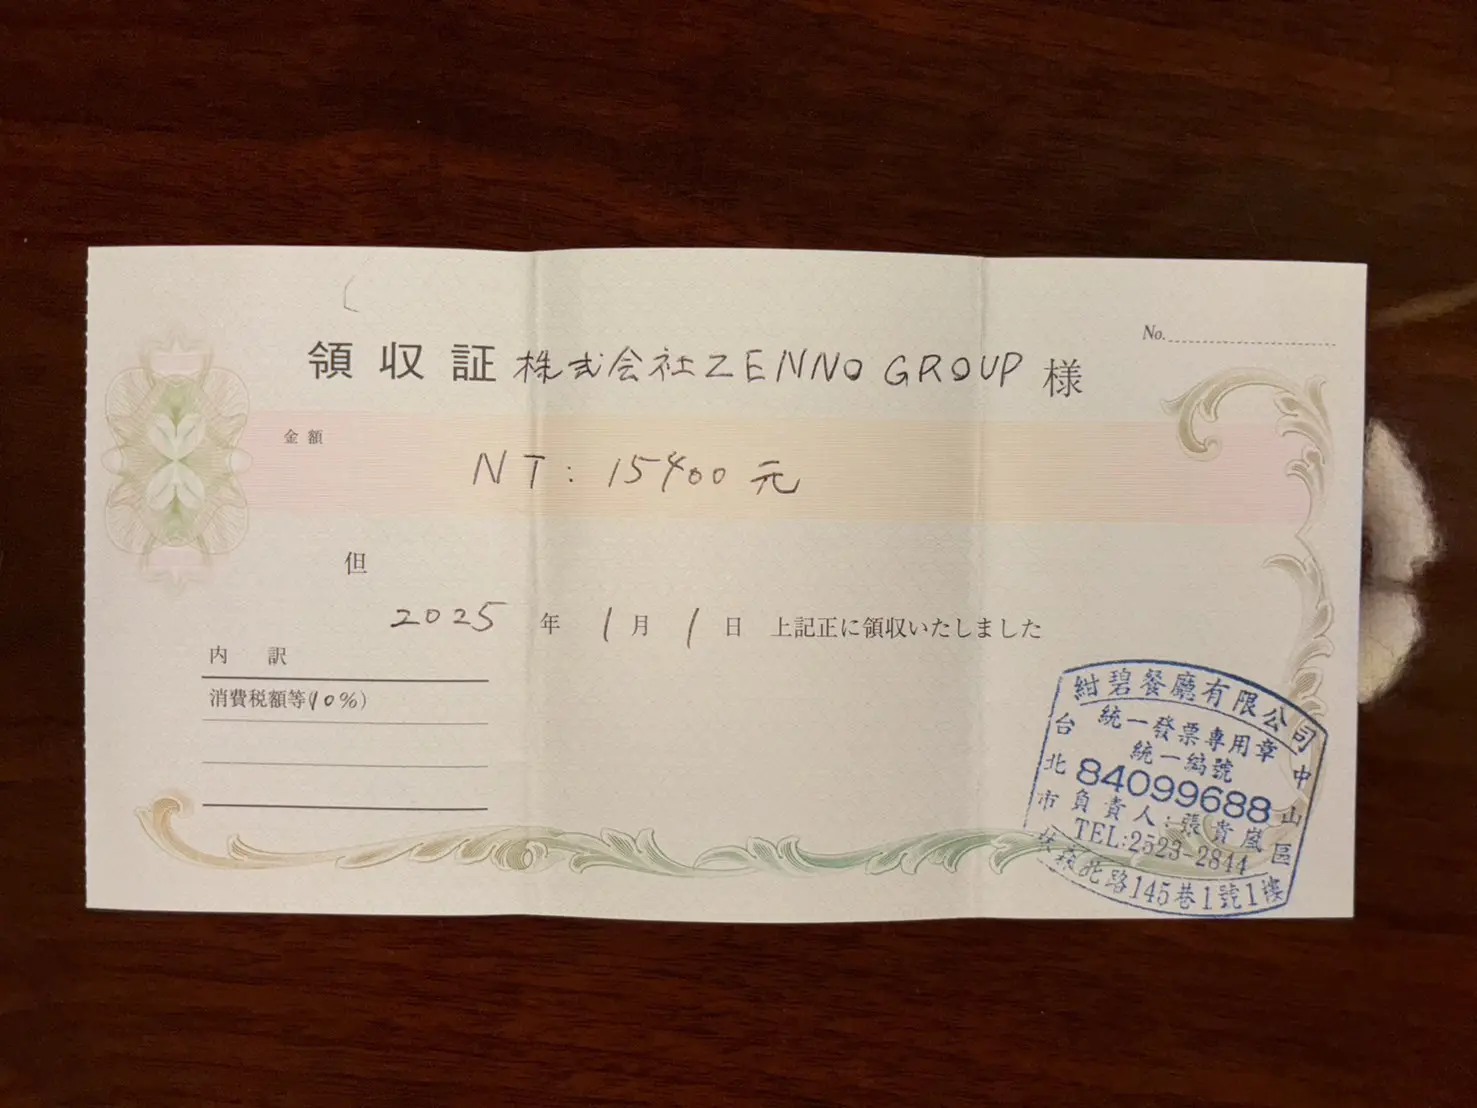 領収証 株式会社ZENNO GROUP 様
No.
金額
NT: 15400 元
但
2025 年 1 月 1 日 上記正に領収いたしました
内 訳
消費税額等(10%)
紺碧餐廳有限公司
統一發票專用章
統一編號
84099688
負責人:張貴嵐
TEL:2523-2844
台北市中山區
林森北路145巷1號1樓